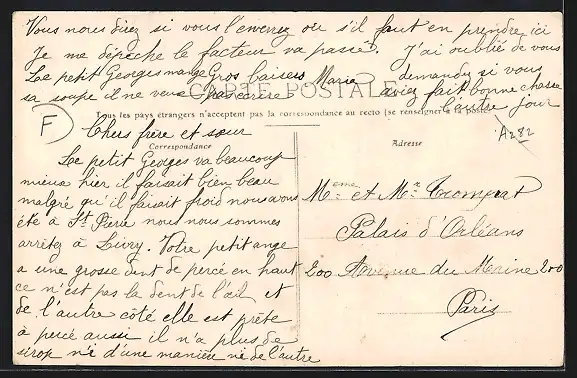 Vous nous direz si vous l'enverrez ou s'il faut en prendre ici
Je me dépêche le facteur va passer. J'ai oublié de vous
Le petit Georges mange Gros baisers Marie demander si vous
sa soupe il ne veut pas écrire aviez fait bonne chasse
l'autre jour
CARTE POSTALE
Tous les pays étrangers n'acceptent pas la correspondance au recto (se renseigner à la poste)
F
A282
Correspondance
Adresse
Chers frère et sœur
Le petit Georges va beaucoup
mieux hier il faisait bien beau
malgré qu'il faisait froid nous avons
été à St Pierre nous nous sommes
arrêtez à Livry. Votre petit ange
a une grosse dent de percé en haut
ce n'est pas la dent de l'œil et
de l'autre côté elle est prête
à percé aussi il n'a plus de
sirop n'i d'une manière ni de l'autre
Meme et Mr Tromprat
Palais d'Orléans
200 Avenue du Maine 200
Paris